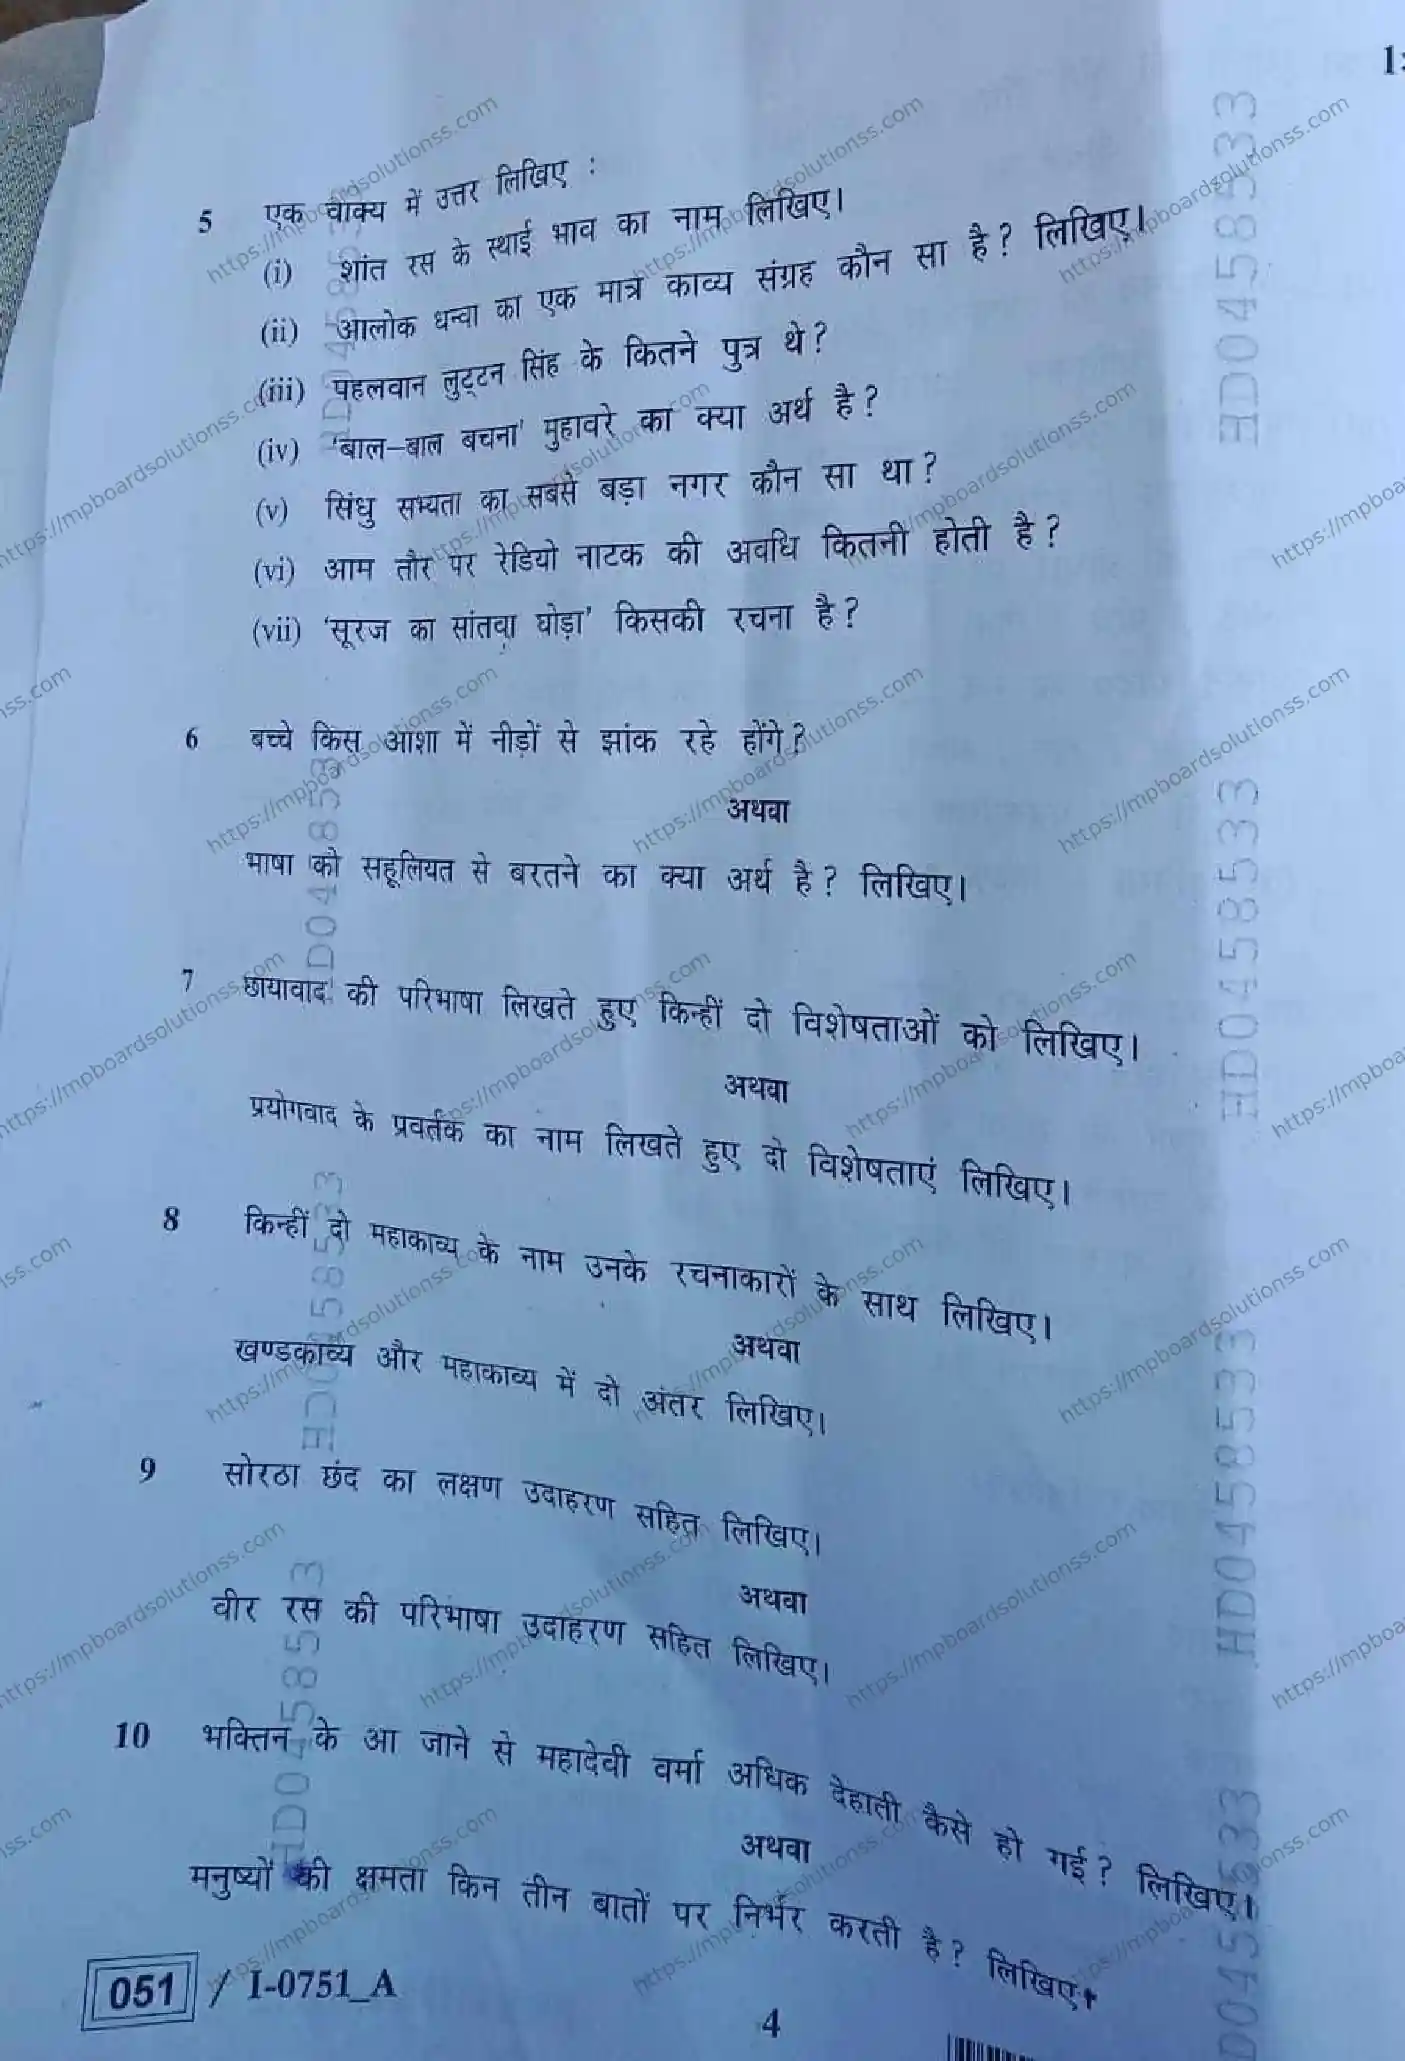 1:
5 एक वाक्य में उत्तर लिखिए :
(i) शांत रस के स्थाई भाव का नाम लिखिए।
(ii) आलोक धन्वा का एक मात्र काव्य संग्रह कौन सा है? लिखिए।
(iii) पहलवान लुट्टन सिंह के कितने पुत्र थे?
(iv) 'बाल-बाल बचना' मुहावरे का क्या अर्थ है?
(v) सिंधु सभ्यता का सबसे बड़ा नगर कौन सा था?
(vi) आम तौर पर रेडियो नाटक की अवधि कितनी होती है?
(vii) 'सूरज का सांतवा घोड़ा' किसकी रचना है?
6 बच्चे किस आशा में नीड़ों से झांक रहे होंगे?
अथवा
भाषा को सहूलियत से बरतने का क्या अर्थ है? लिखिए।
7 छायावाद की परिभाषा लिखते हुए किन्हीं दो विशेषताओं को लिखिए।
अथवा
प्रयोगवाद के प्रवर्तक का नाम लिखते हुए दो विशेषताएं लिखिए।
8 किन्हीं दो महाकाव्य के नाम उनके रचनाकारों के साथ लिखिए।
अथवा
खण्डकाव्य और महाकाव्य में दो अंतर लिखिए।
9 सोरठा छंद का लक्षण उदाहरण सहित लिखिए।
अथवा
वीर रस की परिभाषा उदाहरण सहित लिखिए।
10 भक्तिन के आ जाने से महादेवी वर्मा अधिक देहाती कैसे हो गई? लिखिए।
अथवा
मनुष्यों की क्षमता किन तीन बातों पर निर्भर करती है? लिखिए।
051 / I-0751_A
4
HD0458533
https://mpboardsolutionss.com